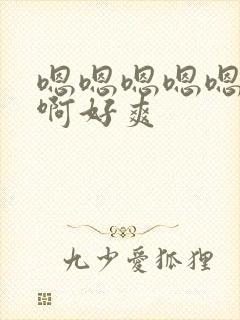 嗯嗯嗯嗯嗯
啊好爽
九少爱狐狸